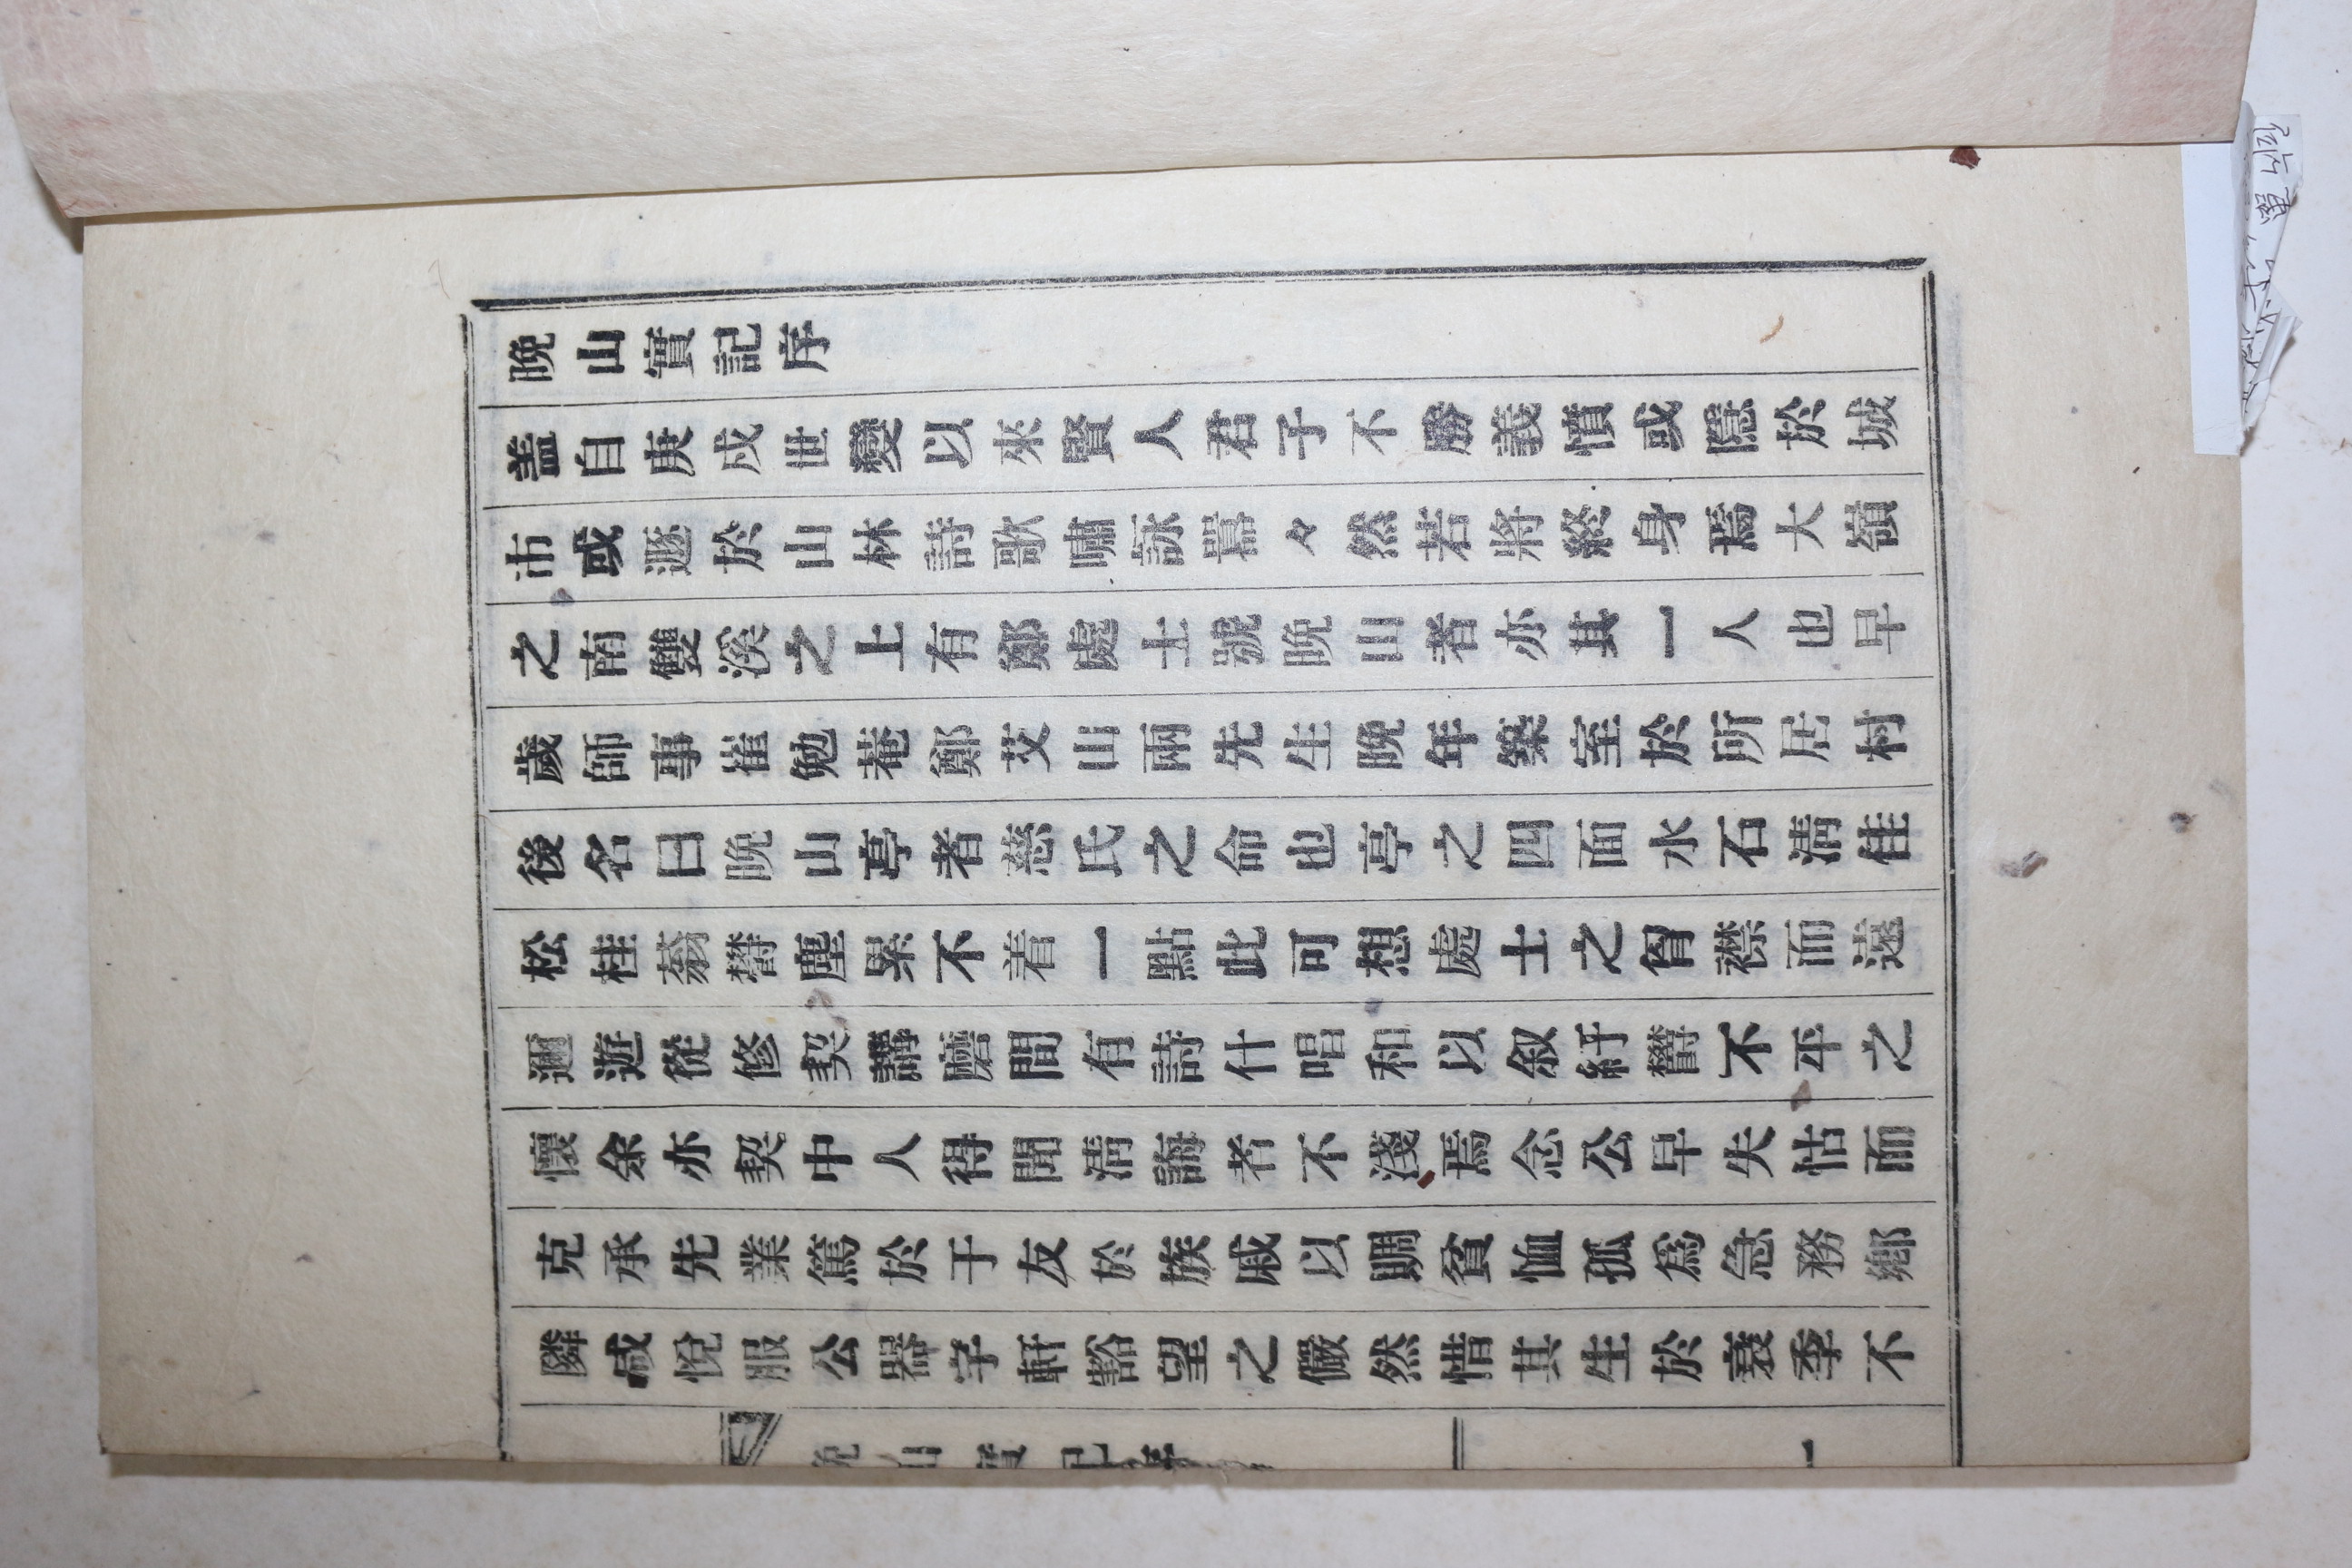 晩山實記序
盖自庚戍世變以來賢人君子不勝義憤或隱於城
市或遯於山林詩歌嘯詠囂々然若將終身焉大嶺
之南雙溪之上有鄭處士號晩山者亦其一人也早
歲師事崔勉菴鄭艾山兩先生晩年築室於所居村
後名曰晩山亭者慈氏之命也亭之四面水石淸佳
松桂蓊欝塵累不着一點此可想處士之胷襟而遠
邇遊從修契講磨間有詩什唱和以叙紆欝不平之
懷余亦契中人得聞淸誨者不淺焉念公早失怙而
克承先業篤於于友於族戚以賙貧恤孤爲急務鄕
隣咸悅服公器宇軒豁望之儼然惜其生於衰季不
晩山實記序
一